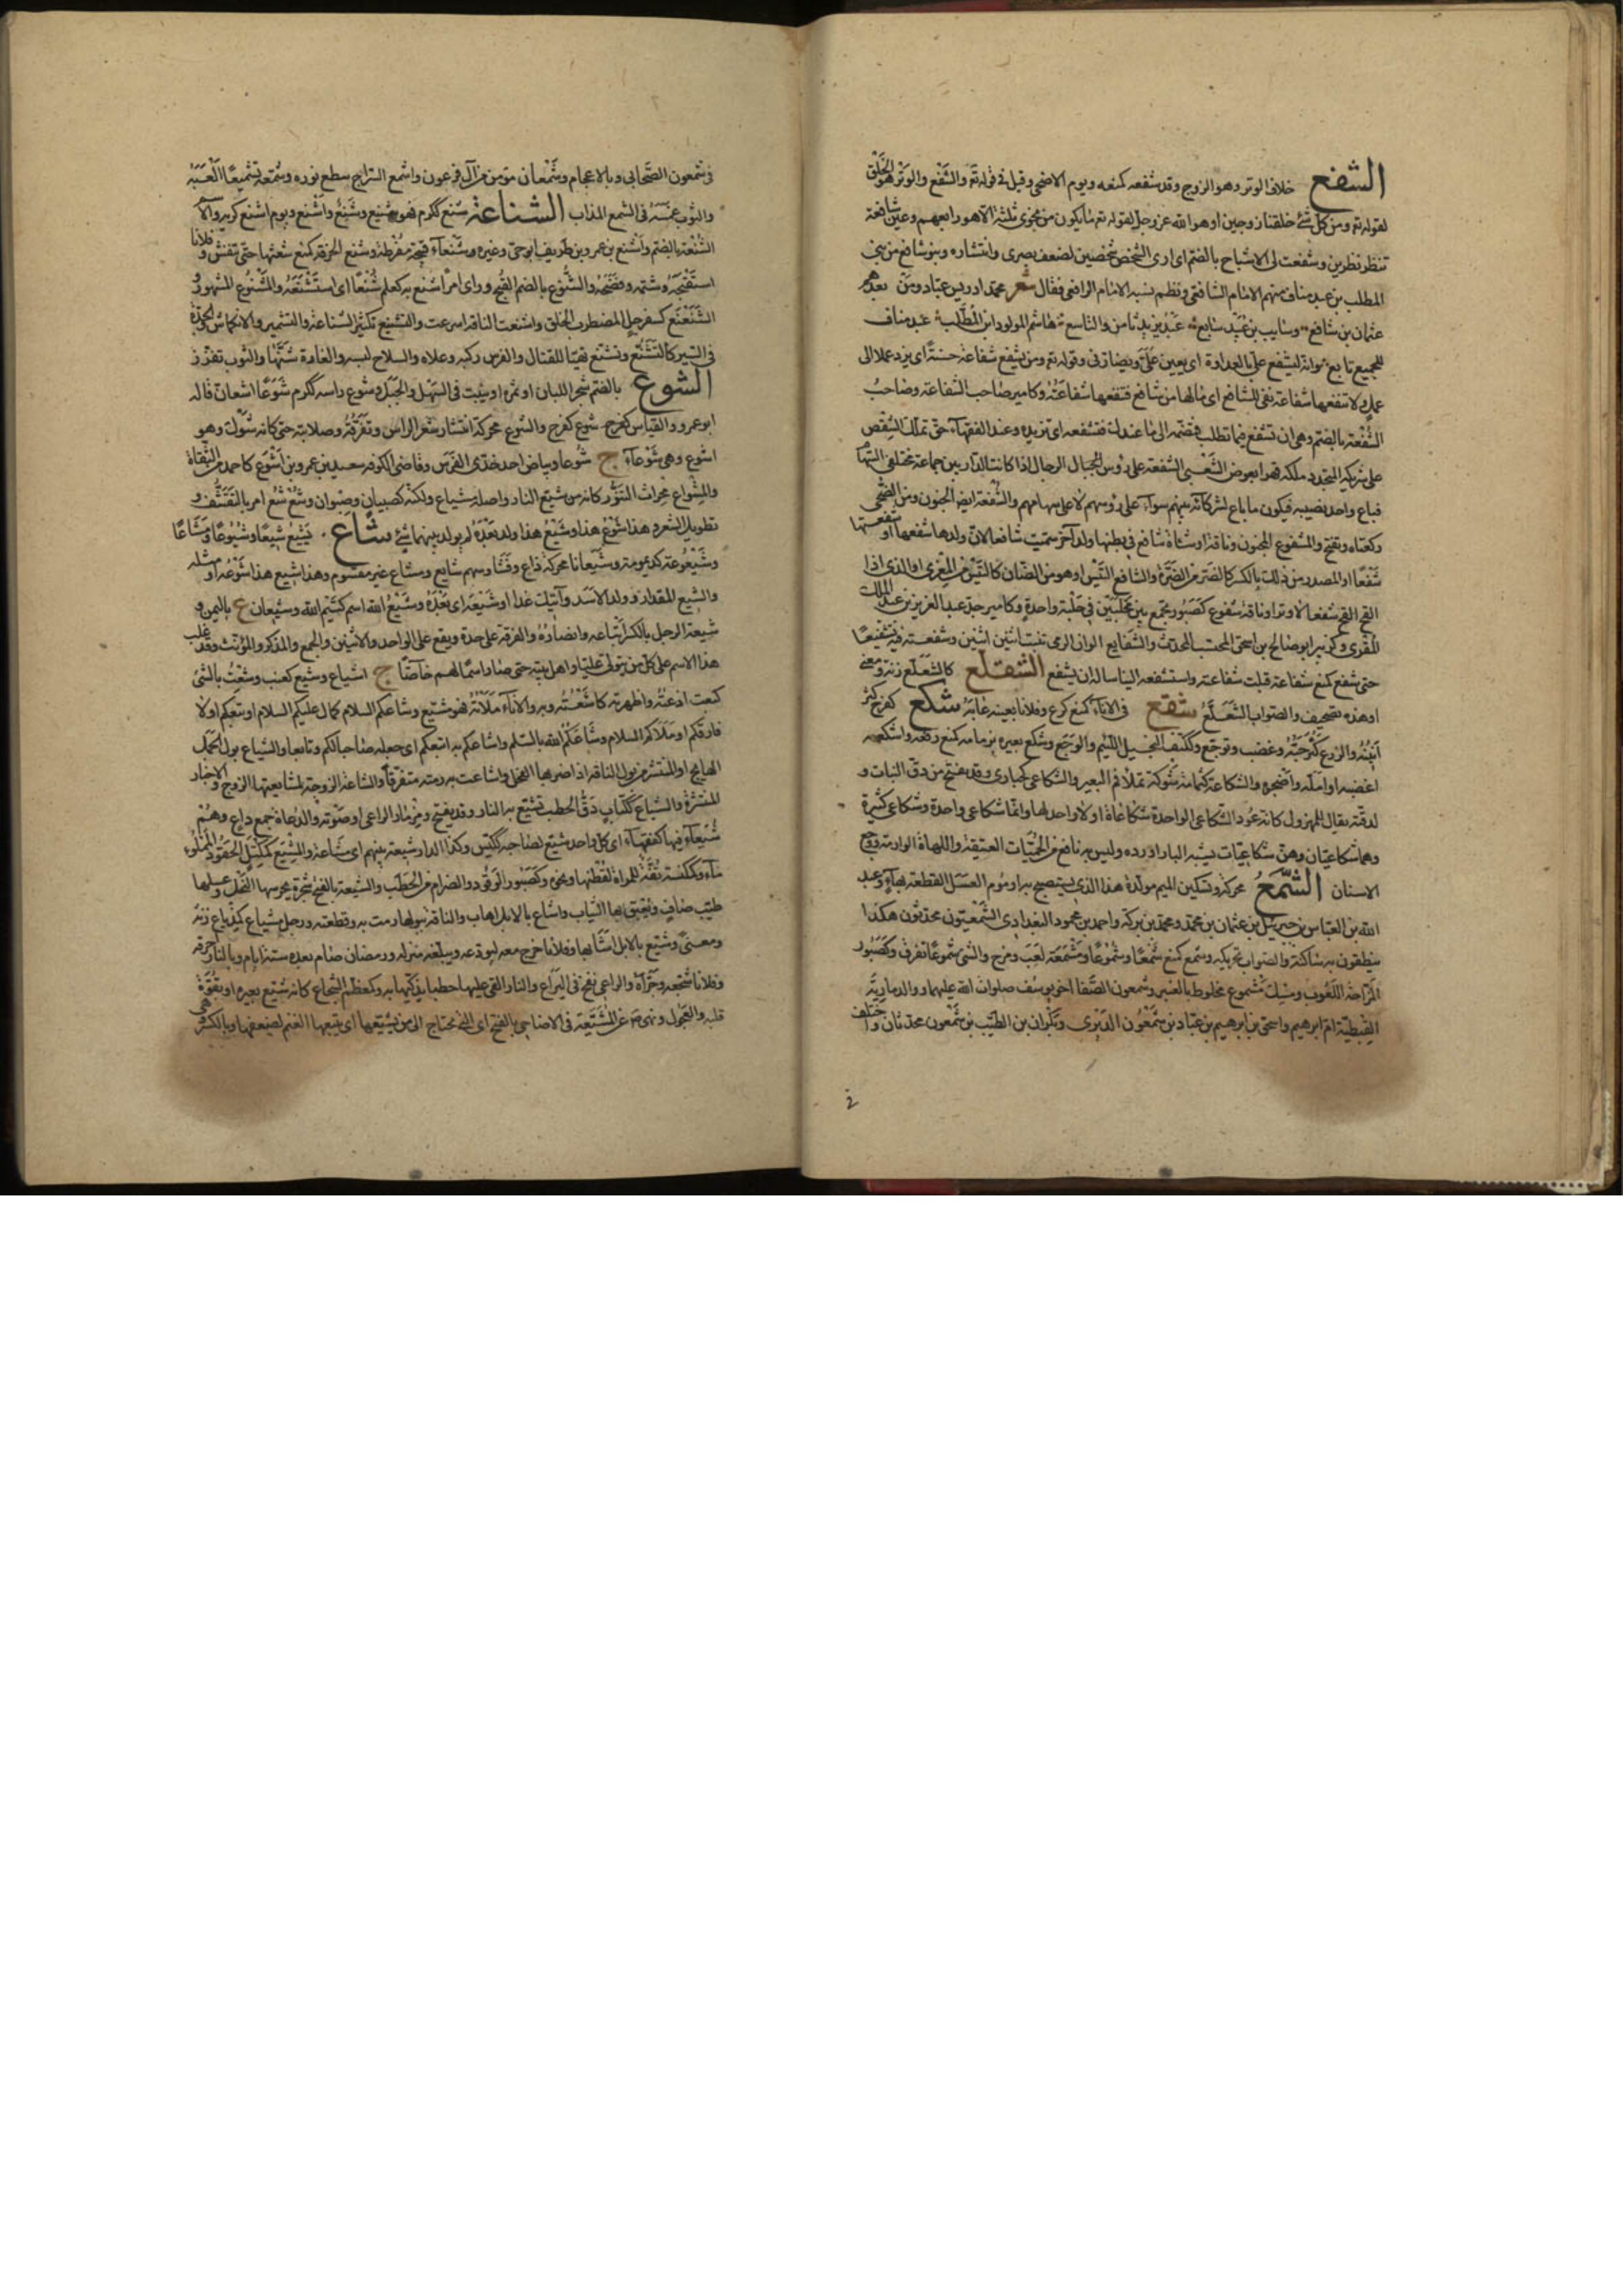 الشفع خلاف الوتر وهو الزوج وقد شفعه كمنعه ويوم الاضحى وقيل في قوله تع والشفع والوتر هو الخلق
لقوله تع ومن كل شئ خلقنا زوجين او هو الله عز وجل لقوله تع ما يكون من نجوى ثلثة الا هو رابعهم وعين شافعة
تنظر نظرين وشفعت لى الاشباح بالضم اى ارى الشخص شخصين لضعف بصرى وانتشاره وبنو شافع من بنى
المطلب بن عبد مناف منهم الامام الشافعى ونظم نسبه الامام الرافعى فقال شعر محمد ادريس عباد ومن بعدهم
عثمان بن شافع وسايب بن عبيد سابع عبد يزيد ثامن والتاسع هاشم المولود ابن المطلب عبد مناف
للجميع تابع وانه ليشفع على بالعداوة اى يعين على ويضارنى وقوله تع ومن يشفع شفاعة حسنة اى يزد عملا الى
عمل ولا تنفعها شفاعة نفى للشافع اى ما لها من شافع فتنفعها شفاعته وكامير صاحب الشفاعة وصاحب
الشفعة بالضم وهى ان تشفع فيما تطلب فتضمه الى ما عندك فتشفعه اى تزيده وعند الفقهاء حق تملك الشقص
على شريكه المتجدد ملكه قهرا بعوض الشعبى الشفعة على رؤس الرجال اذا كانت الدار بين جماعة مختلفى السهام
فباع واحد نصيبه فيكون ما باع لشركائه بينهم سواء على رؤسهم لا على سهامهم والشفعة ايضا الجنون ومن الضحى
ركعتاه ويفتح والمشفوع المجنون وناقة او شاة شافع فى بطنها ولد يتبعها آخر سميت شافعا لان ولدها شفعها او شفعتها
شفعا او المصدر من ذلك بالكسر كالضر من الضرة والشافع التيس او هو من الضان كالتيس من المعزى او الذى اذا
القح القح شفعا لا وترا وناقة شفوع كصبور تجمع بين محلبين فى حلبة واحدة وكامير جد عبد العزيز بن عبد الملك
المقرى وكزبير ابو صالح بن اسحق المحتسب المحدث والشفايع الوان الرعى تنبت اثنين اثنين وشفعته فيه تشفيعا
حتى شفع كمنع شفاعة قبلت شفاعته واستشفعه الينا ساله ان يشفع الشفلع كالشعلع زنة ومعنى
او هذه تصحيف والصواب الشعلع شقع فى الاناء كمنع كرع وفلانا بعينه عابه شكع كفرح كثر
انينه والزرع كثر حبه وغضب وتوجع وككتف البخيل اللئيم والوجع وشكع بعيره بزمامه كمنع رفعه واشكعه
اغضبه او امله واضجره والشكاعة كثمامة شوكة تملا فم البعير والشكاعى كحبارى وقد يفتح من دق النبات و
لدقته يقال للمهزول كانه عود الشكاعى الواحدة شكاعاة او لا واحد لها وانما شكاعى واحدة وشكاعى كثيرة
وهما شكاعيان وهن شكاعيات يشبه الباذاورد وليس به نافع من الحميات العتيقة واللهاة الوارمة ووجع
الاسنان الشمع محركة وتسكين الميم مولدة هذا الذى يستصبح به او موم العسل القطعة بهاء وعبد
الله بن العباس بن جبريل بن عثمان بن محمد ومحمد بن بركة واحمد بن محمود البغدادى الشمعيون محدثون هكذا
ينطقون به ساكنة والصواب تحريكه وشمع كمنع شمعا وشموعا ومشمعة لعب ومزح والشئ شموعا تفرق وكصبور
المزاحة اللعوب ومسك مشموع مخلوط بالعنبر وشمعون الصفا اخو يوسف صلوات الله عليهما ووالد مارية
القبطية ام ابرهيم واسحق بن ابرهيم بن عباد بن شمعون الدبرى وبكران بن الطيب بن شمعون محدثان واختلف
فى شمعون الصحابى وبالاعجام وشمعان مؤمن من آل فرعون واشمع السراج سطع نوره وشمعه تشميعا العبه
والثوب غمسه فى الشمع المذاب الشناعة شنع ككرم فهو شنيع وشنع واشنع ويوم اشنع كريه والاسم
الشنعة بالضم واشنع بن عمرو بن طريف ابو حى وغيره وشنعاء قبيحة مفرطة وشنع الخرقة كمنع شعثها حتى تنفش وفلانا
استقبحه وشتمه وفضحه والشنوع بالضم القبح وراى امرا شنع به كعلم شنعا اى استشنعه والمشنوع المشهور
الشنعنع كسفرجل المضطرب الخلق واشنعت الناقة اسرعت والتشنيع تكثير الشناعة والتشمير والانكماش والجد
فى السير كالتشنع وتشنع تهيا للقتال والفرس ركبه وعلاه والسلاح لبسه والغارة شنها والثوب تفزز
الشوع بالضم شجر البان او ثمره او ينبت فى السهل والجبل وشوع راسه ككرم شوعا اشعان قاله
ابو عمرو والقياس كفرح شوع كفرح والشوع محركة انتشار شعر الراس وتفرقه وصلابته حتى كانه شوك وهو
اشوع وهى شوعاء ج شوعا وبياض احد خدى الفرس وقاضى الكوفة سعيد بن عمرو بن اشوع كاحمد من الثقاة
والمشواع محراث التنور كانه من شيع النار واصله مشياع ولكنه كصبيان وصبوان وشع شع امر بالتقشف و
تطويل الشعر وهذا شوع هذا وشيع هذا ولد بعده لم يولد بينهما شئ شاع يشيع شيعا وشيوعا ومشاعا
وشيعوعة كديمومة وشيعانا محركة ذاع وفشا وسهم شايع وشاع غير مقسوم وهذا شيع هذا شوعه او مثله
والشيع المقدار وولد الاسد وآتيك غدا او شيعه اى بعده وشيع الله اسم كتيم الله وشيعان ع باليمن و
شيعة الرجل بالكسر اتباعه وانصاره والفرقة على حدة ويقع على الواحد والاثنين والجمع والمذكر والمؤنث وقد غلب
هذا الاسم على كل من يتولى عليا واهل بيته حتى صار اسما لهم خاصا ج اشياع وشيع كعنب وشعت بالشئ
كبعت اذعته واظهرته كاشعته وبه والاناء ملاته فهو مشيع وشاعكم السلام كمال عليكم السلام او تبعكم او لا
فارقكم او ملاكم السلام وشاعكم الله بالسلم واشاعكم به اتبعكم اى جعله صاحبا لكم وتابعا والشياع بول الجمل
الهايج او المنتشر من بول الناقة اذا ضربها الفحل واشاعت به رمته متفرقا والشاعة الزوجة لمشايعتها الزوج والاخبار
المنتشرة والشياع ككتاب دق الحطب تشيع به النار وقد يفتح ومزمار الراعى او صوته والدعاة جمع داع وهم
شيعاء فيها كفقهاء اى كل واحد شيع لصاحبه ككيس وكذا الدار شيعة بينهم اى مشاعة والمشيع كمكيل الحقود المملوء
ماء وككنسة قفة للمراة لقطنها ونحوه وكصبور الوقود والضرام من الحطب والشيعة بالفتح شجرة يجرسها النحل وعسلها
طيب صاف ويعبق بها الثياب واشاع بالابل اهاب والناقة ببولها رمت به وقطعته ورجل مشياع كمذياع زنة
ومعنى وشيع بالابل اشاع بها وفلانا خرج معه ليودعه ويبلغه منزله ورمضان صام بعده ستة ايام وبالنار احرقه
وفلانا شجعه وجراه والراعى نفخ فى اليراع والنار القى عليها حطبا يذكيها به وكمعظم الشجاع كانه شيع بغيره او بقوة
قلبه والعجول ونهى صم عن المشيعة فى الاضاحى بالفتح اى التى تحتاج الى من يشيعها اى يتبعها الغنم لضعفها وبالكسر وهى